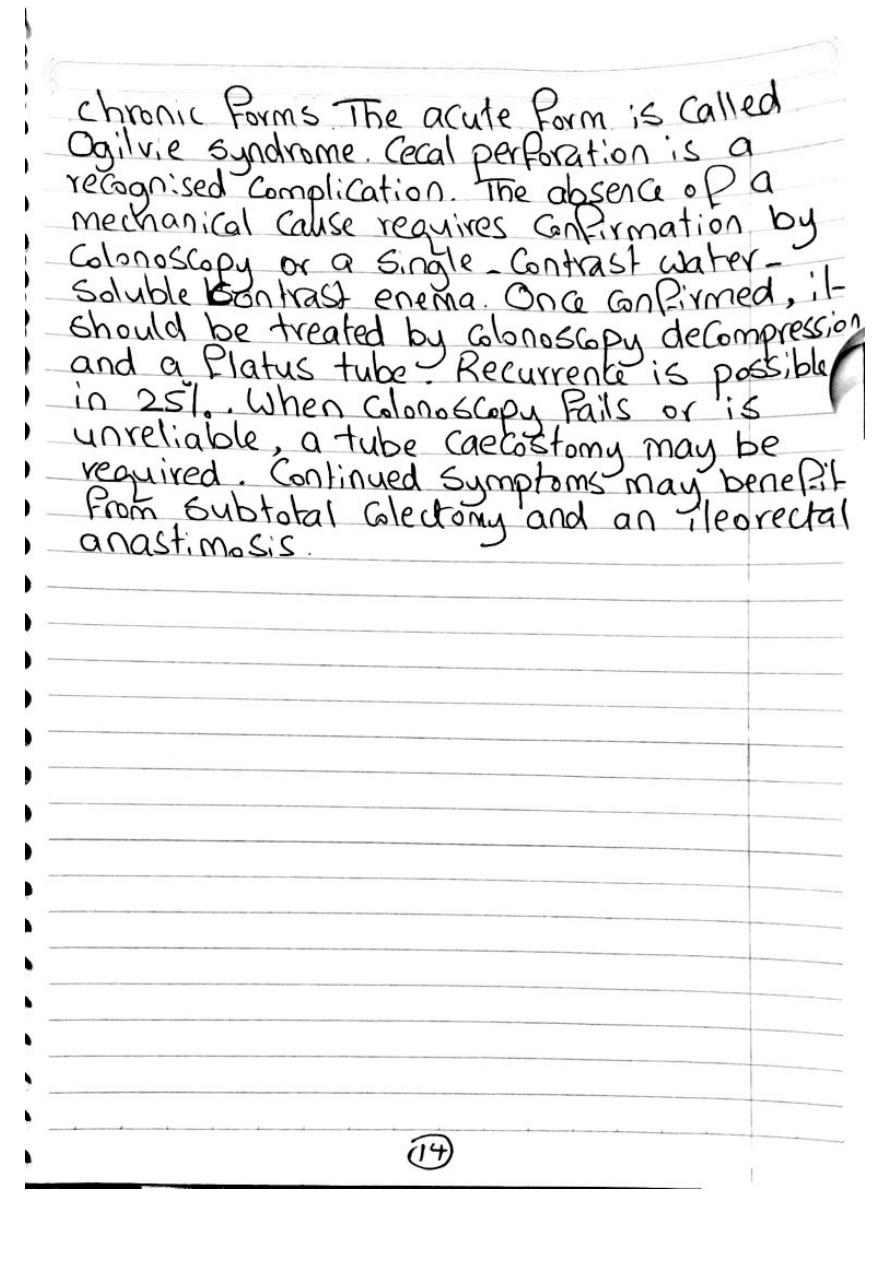 chronic forms. The acute form is called
Ogilvie syndrome. Cecal perforation is a
recognised complication. The absence of a
mechanical cause requires confirmation by
colonoscopy or a single-contrast water-
soluble contrast enema. Once confirmed, it
should be treated by colonoscopy decompression
and a flatus tube. Recurrence is possible
in 25%. When colonoscopy fails or is
unreliable, a tube caecostomy may be
required. Continued symptoms may benefit
from subtotal colectomy and an ileorectal
anastimosis.
14